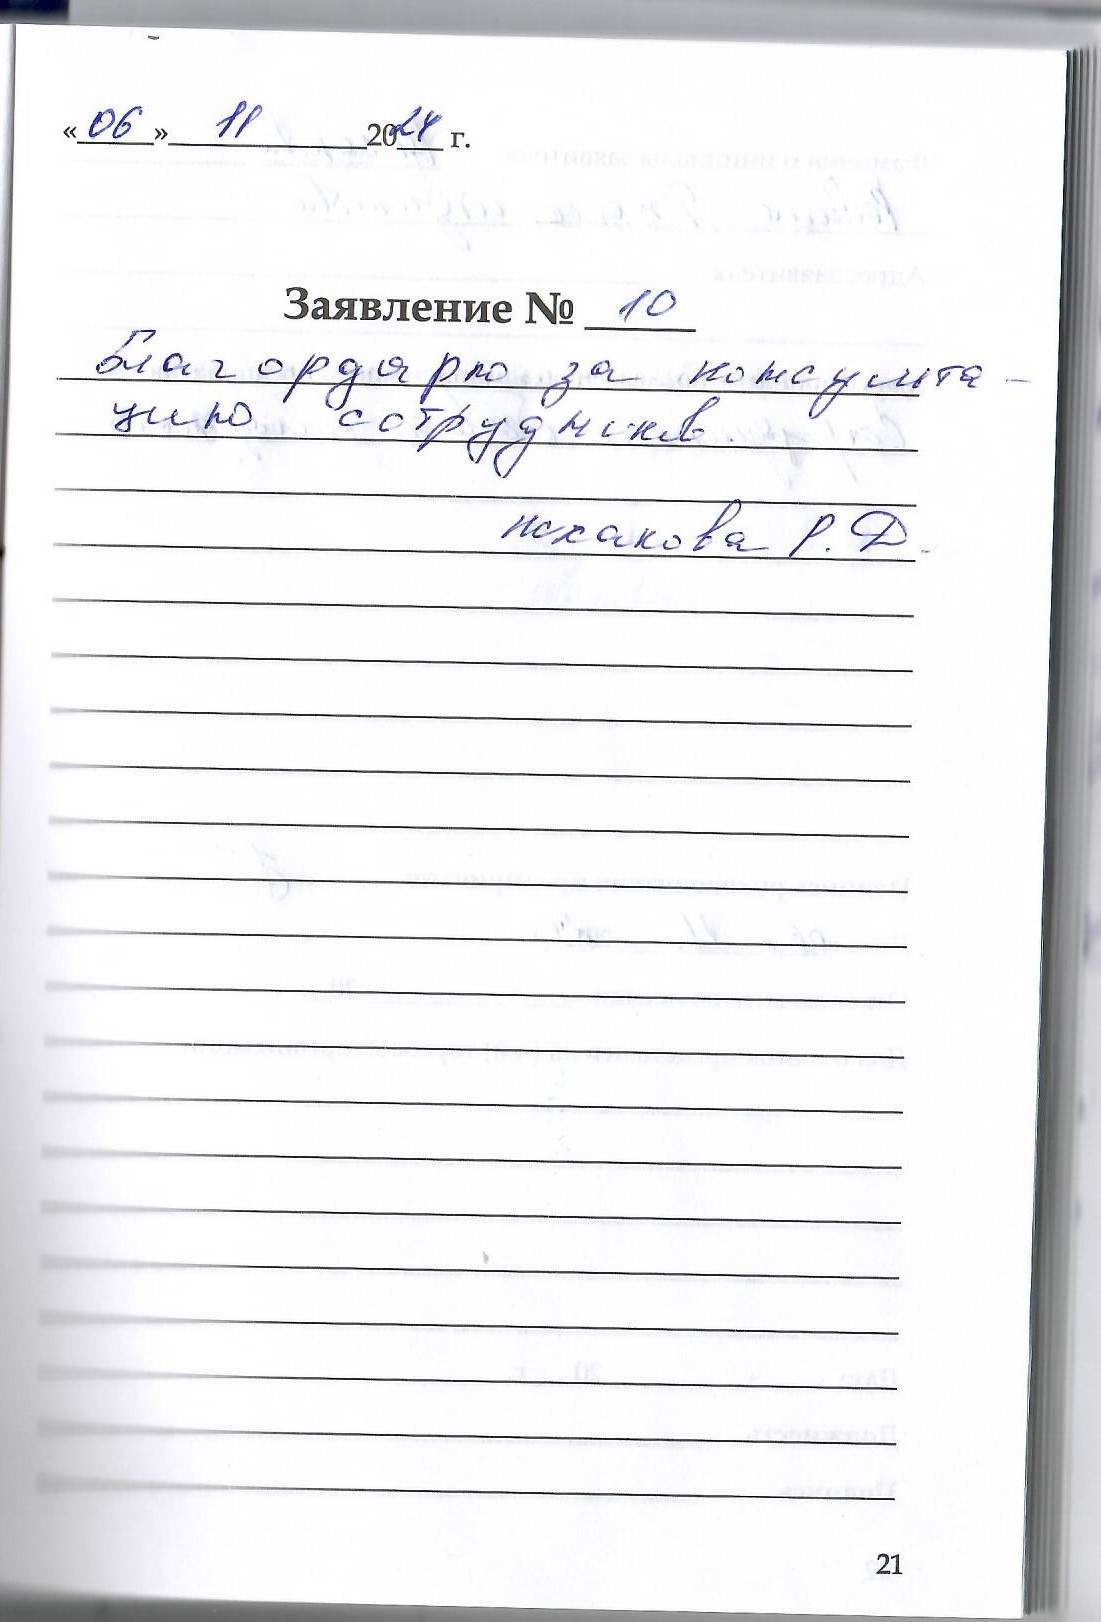 «06» 11 2024 г.
Заявление № 10
Благордярю за консульта-
цию сотрудников
Исхакова Р. Д.
21